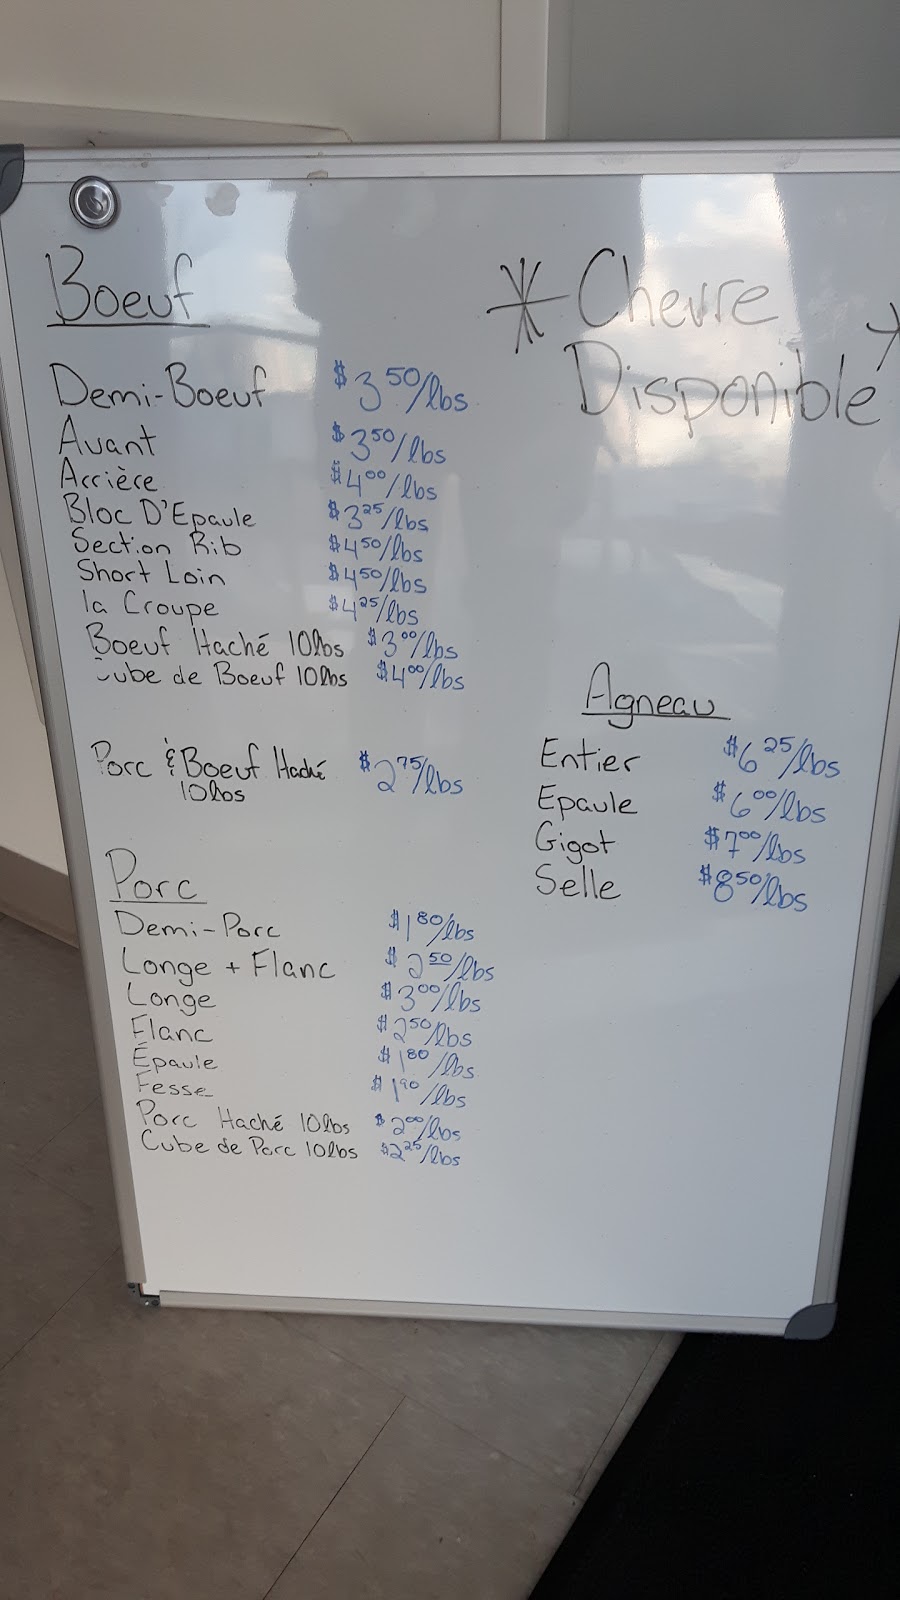 Boeuf
Demi-Boeuf $3.50/lbs
Avant $3.50/lbs
Arrière $4.00/lbs
Bloc D'Epaule $3.25/lbs
Section Rib $4.50/lbs
Short Loin $4.50/lbs
la Croupe $4.25/lbs
Boeuf Haché 10lbs $3.00/lbs
Cube de Boeuf 10lbs $4.00/lbs
Porc & Boeuf Haché $2.75/lbs
10lbs
Porc
Demi-Porc $1.80/lbs
Longe + Flanc $2.50/lbs
Longe $3.00/lbs
Flanc $2.50/lbs
Épaule $1.80/lbs
Fesse $1.90/lbs
Porc Haché 10lbs $2.00/lbs
Cube de Porc 10lbs $2.25/lbs
* Chevre
Disponible *
Agneau
Entier $6.25/lbs
Epaule $6.00/lbs
Gigot $7.00/lbs
Selle $8.50/lbs